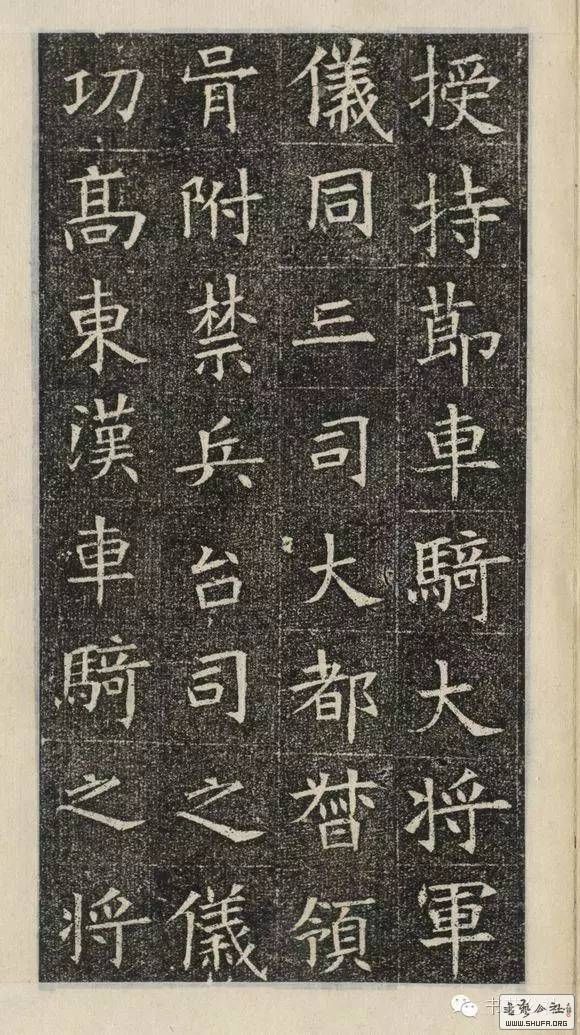 授持節車騎大將軍
儀同三司大都督領
胥附禁兵台司之儀
功髙東漢車騎之將
WWW.SHUFA.ORG